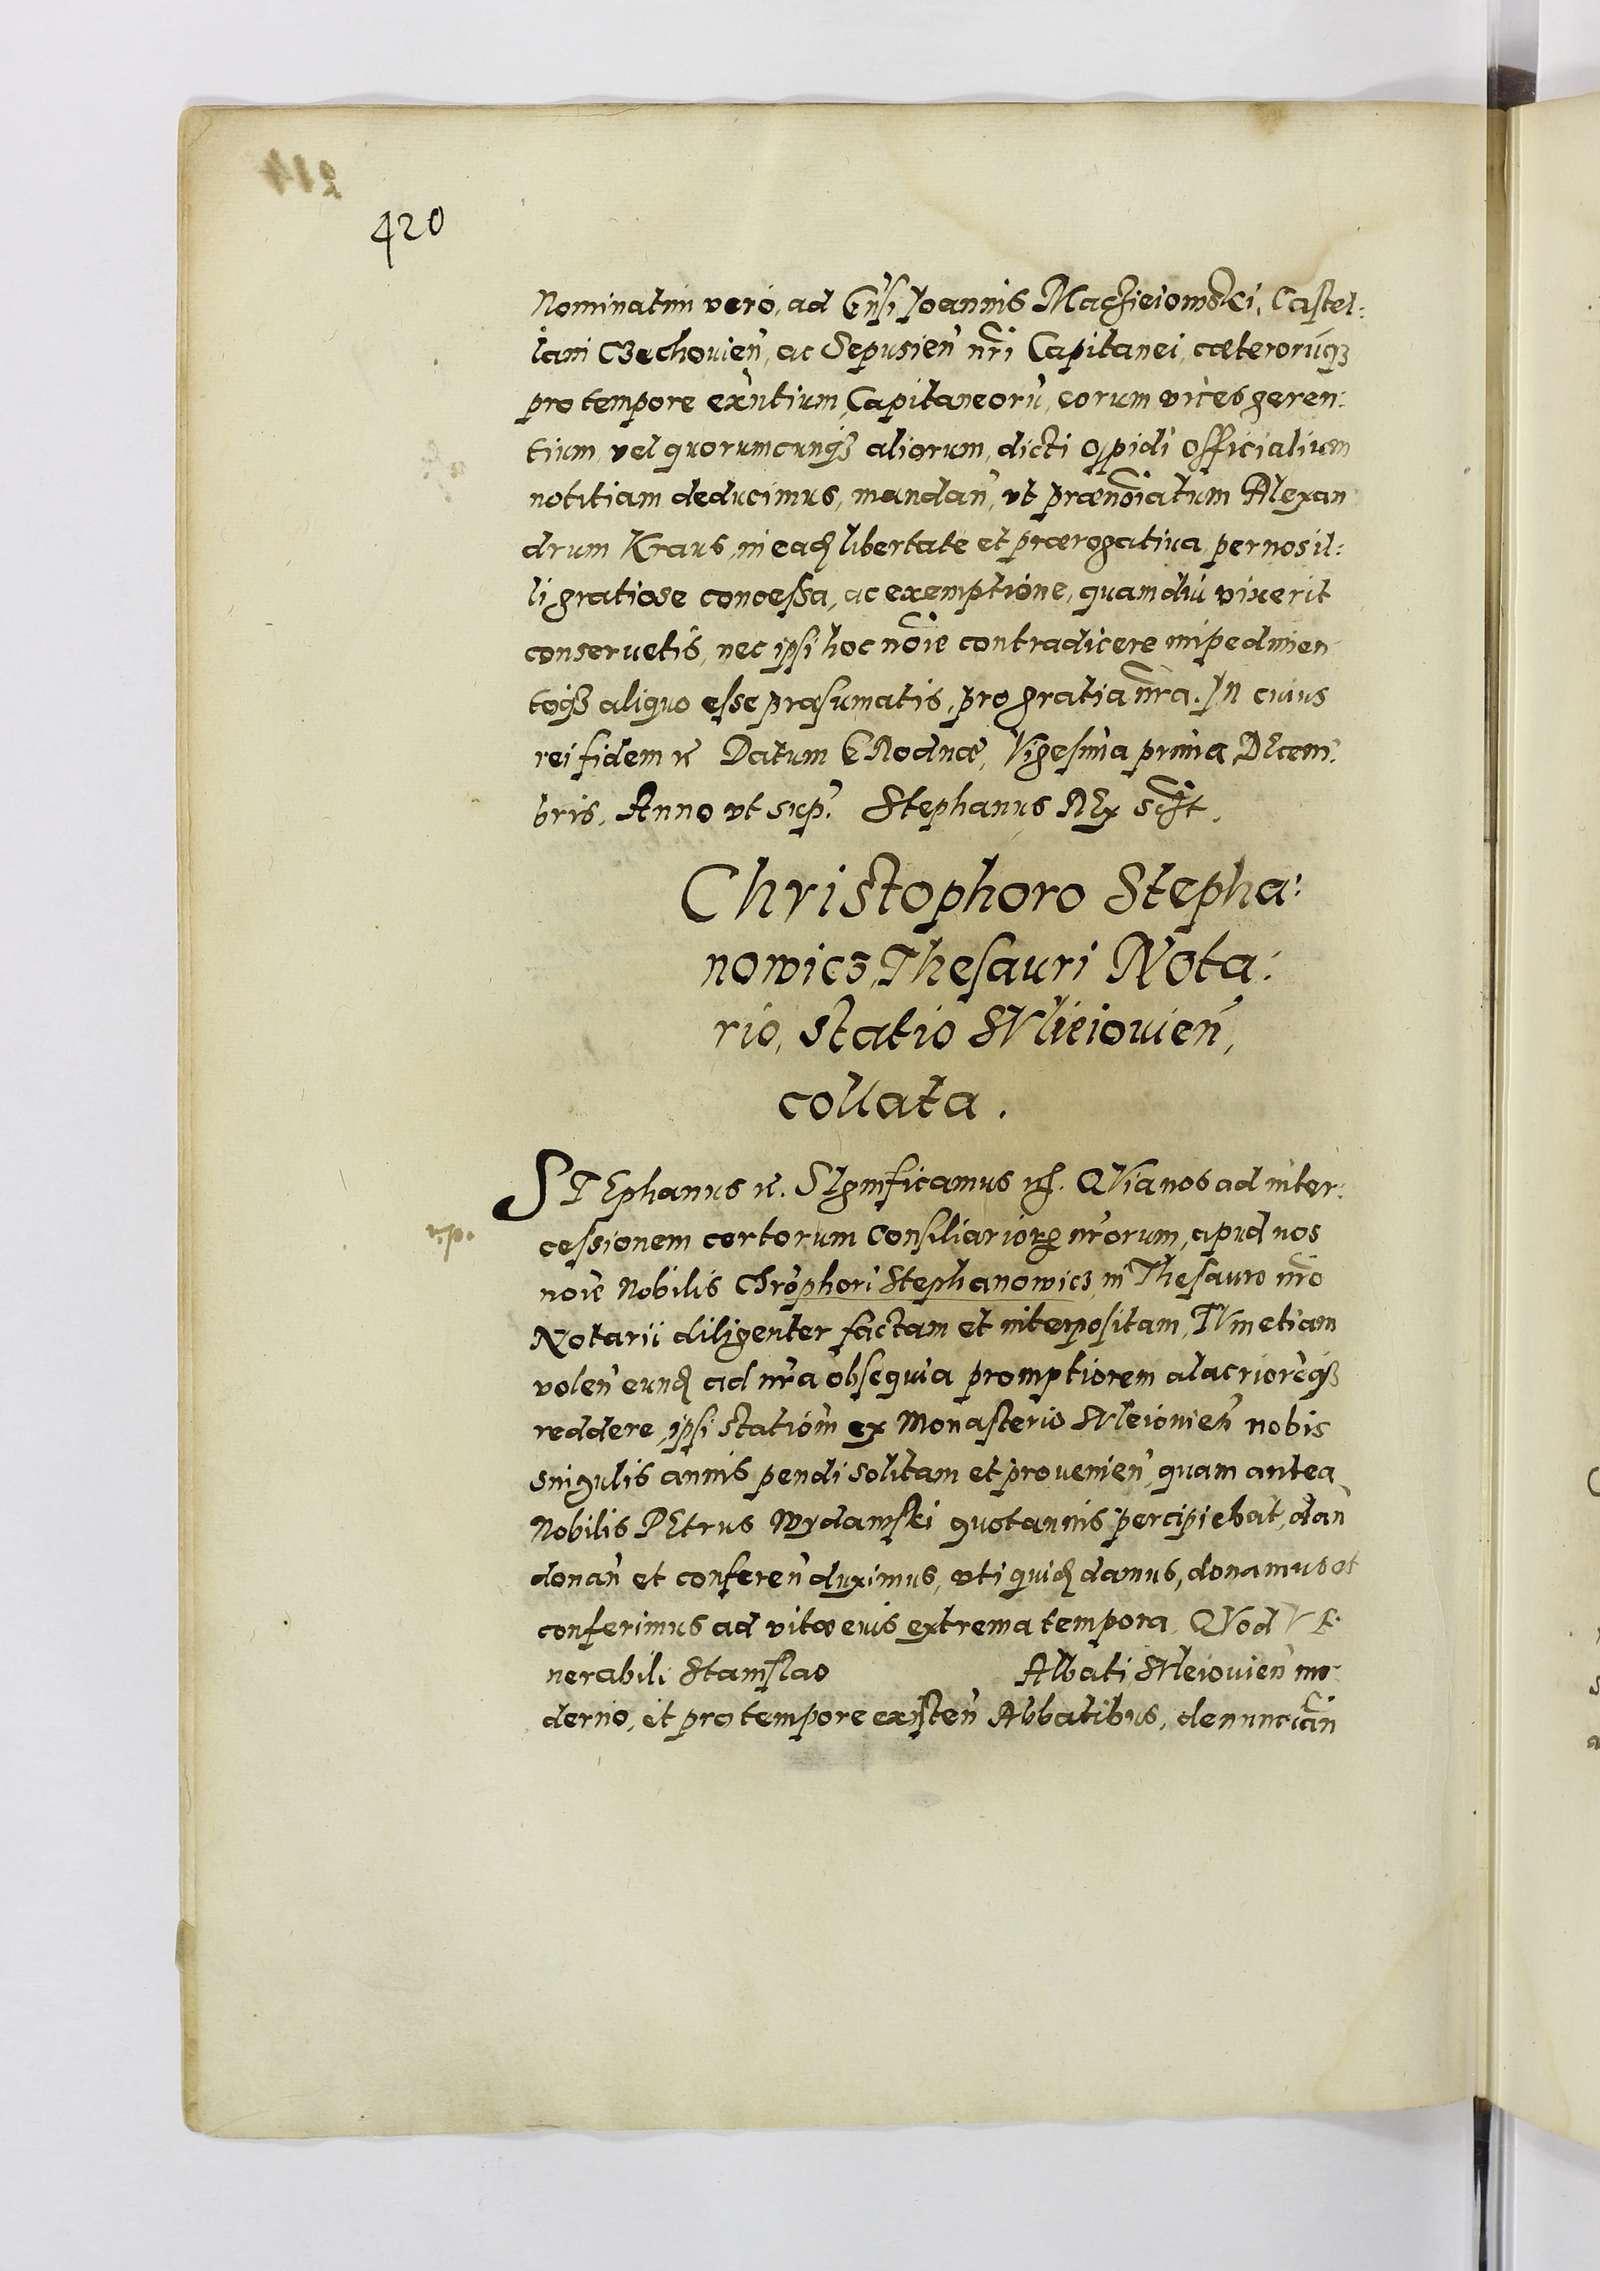 420
Nominatim vero, ad Gn̄si Joannis Maczieiowski, Castel:
lani Czechovien̄, ac Sepusien̄ nr̄i Capitanei, cæterorúq3
pro tempore exn̄tium, Capitaneorū, eorum vices geren:
tium, vel quorumcunq3 aliorum, dicti oppidi officialium
notitiam deducimus, mandan̄, vt præno͞iatum Alexan
drum Kraus, in eaḍ libertate et prærogatiua, per nos il:
li gratiose concessa, ac exemptione, quamdiu vixerit
conseruetis, nec ipsi hoc no͞ie contradicere impedimen
toq3 aliquo esse præsumatis, pro gratia nr̄a. In cuius
rei fidem &c Datum Grodnæ, Vigesima prima, DEcem:
bris, Anno vt sup. Stephanus REx sc͞pt.
Christophoro Stepha:
nowicz, Thesauri Nota:
rio, statio SVleiouien̄,
collata.
STEphanus &c. SIgnificamus &c. QVia nos ad inter:
cessionem certorum Consiliarioꝝ nr̄orum, apud nos
no͞ie Nobilis Chrōphori Stephanowicz, in Thesauro nr̄o
Notarii diligenter factam et interpositam, TVm etiam
volen̄ eunḍ ad nr̄a obsequia promptiorem alacriorēq3
reddere, ipsi statiōm ex Monasterio SVleiouien̄ nobis
singulis annis pendi solitam et prouenien̄, quam antea
Nobilis PEtrus Wydawski quotannis percipiebat, dan̄
donan̄ et conferen̄ duximus, vti quiḍ damus, donamus et
conferimus ad vitæ eius extrema tempora, QVod VE
nerabili Stanislao Abbati SVleiouien̄ mo
derno, et pro tempore existen̄ Abbatibus, denuncian̄